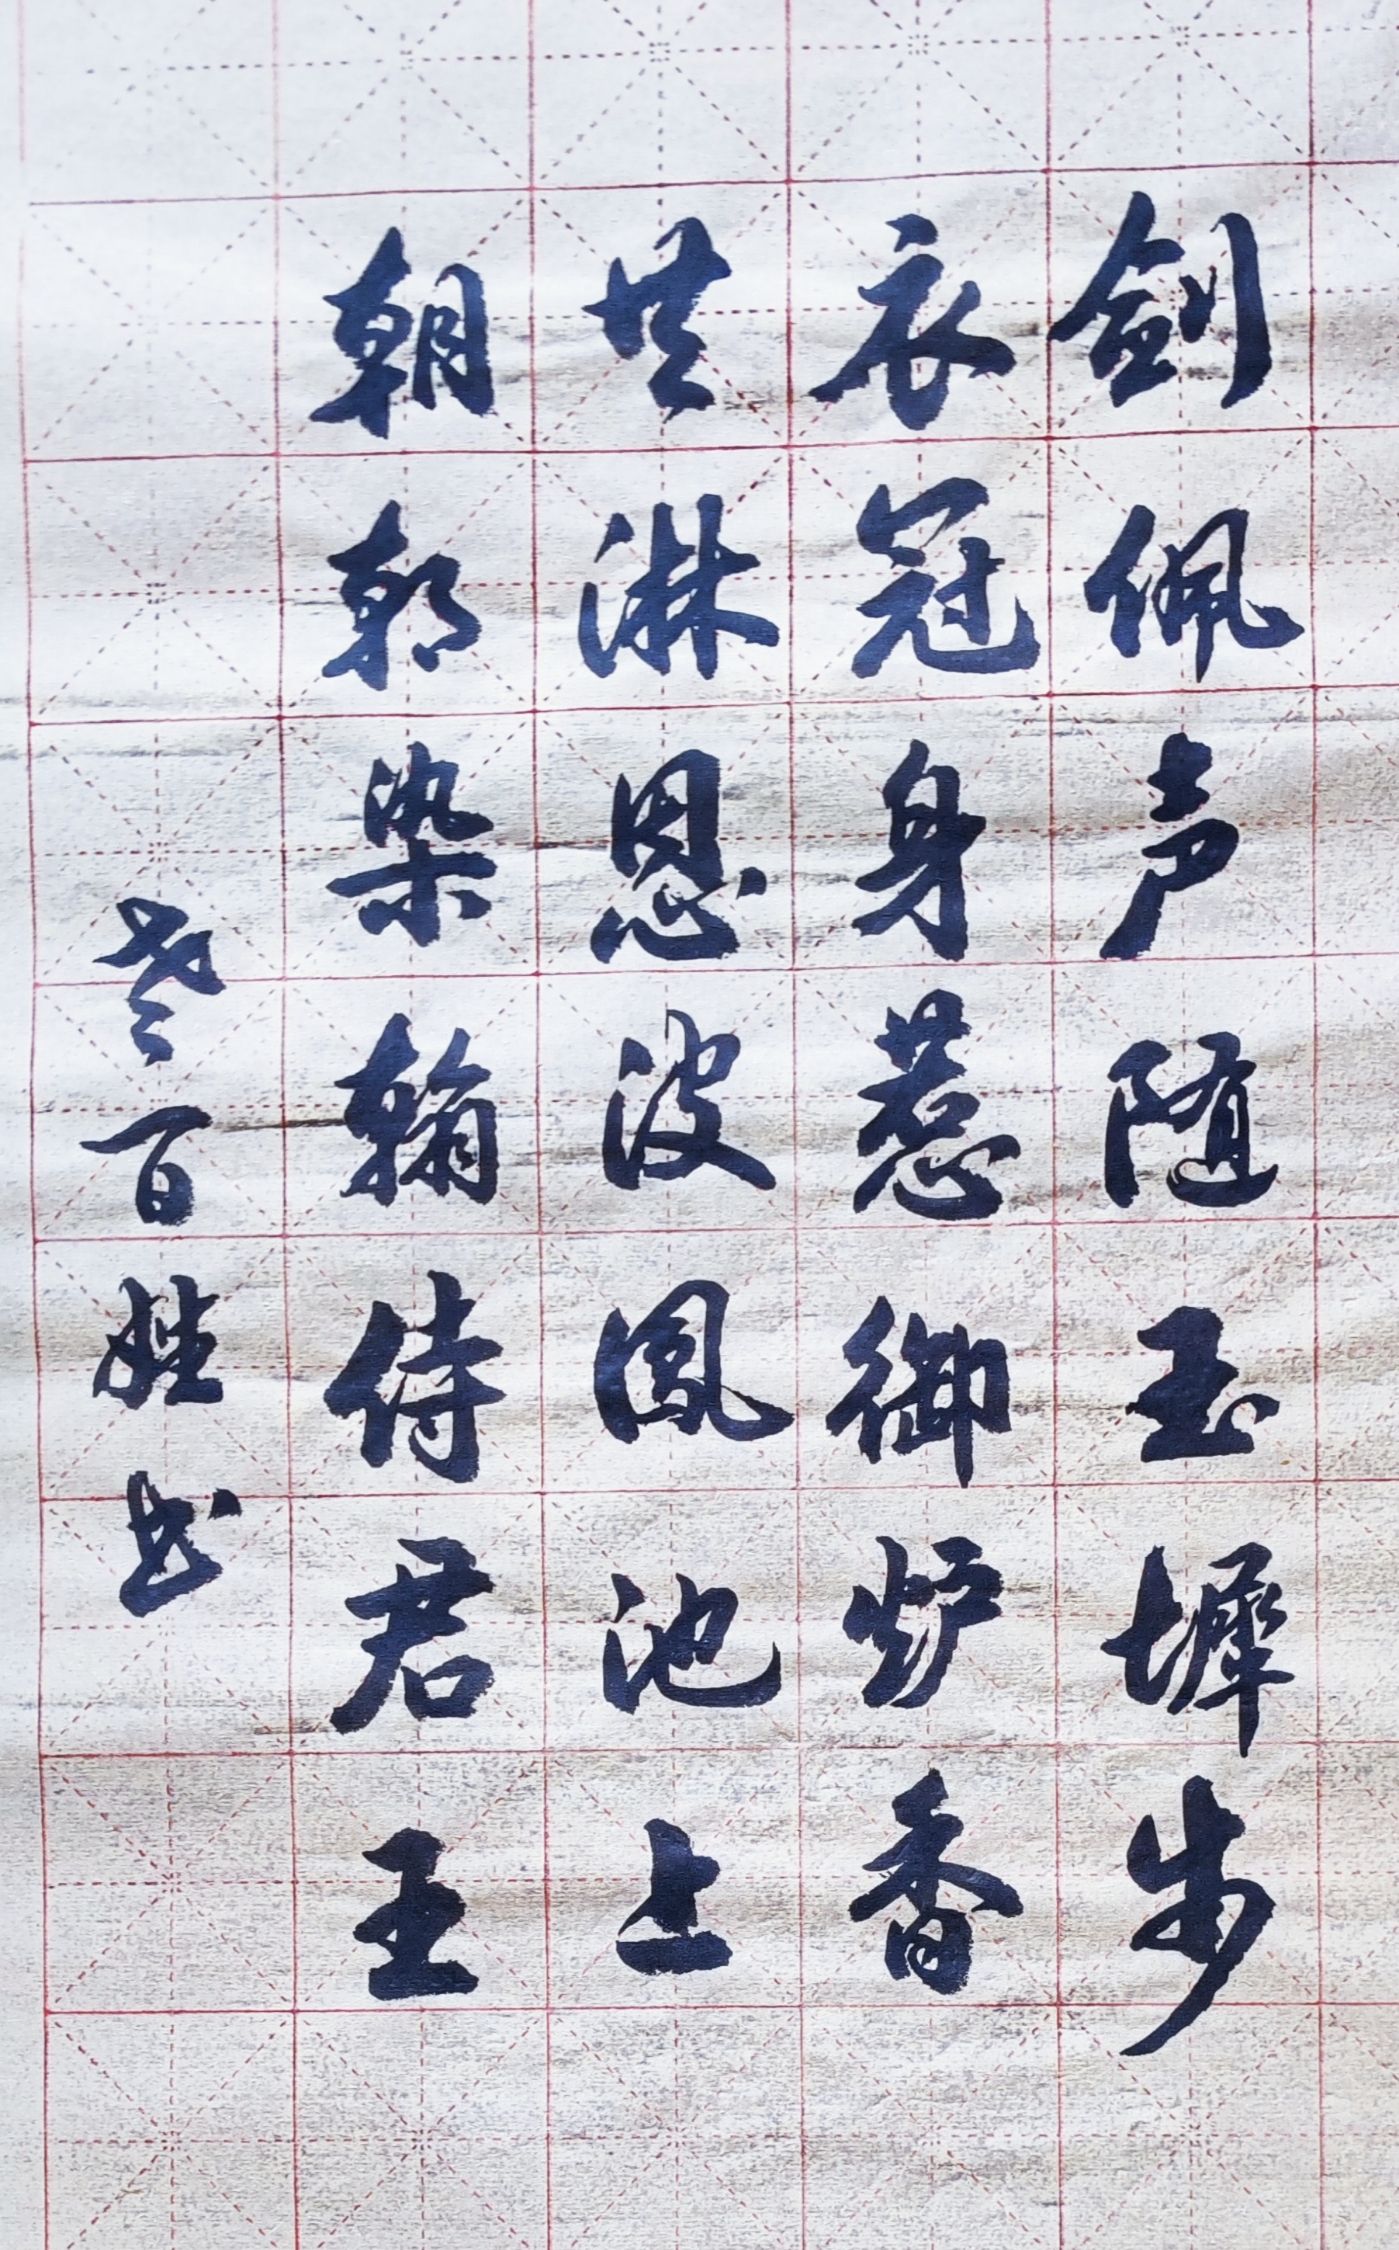 剑佩声随玉墀步
衣冠身惹御炉香
共淋恩波凤池上
朝朝染翰侍君王
老百姓书